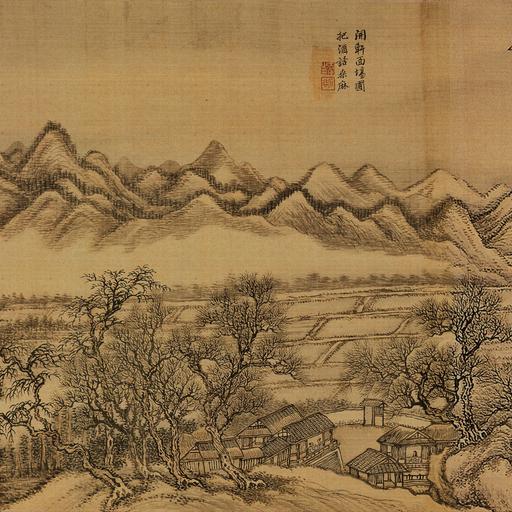 開軒面場圃
把酒話桑麻